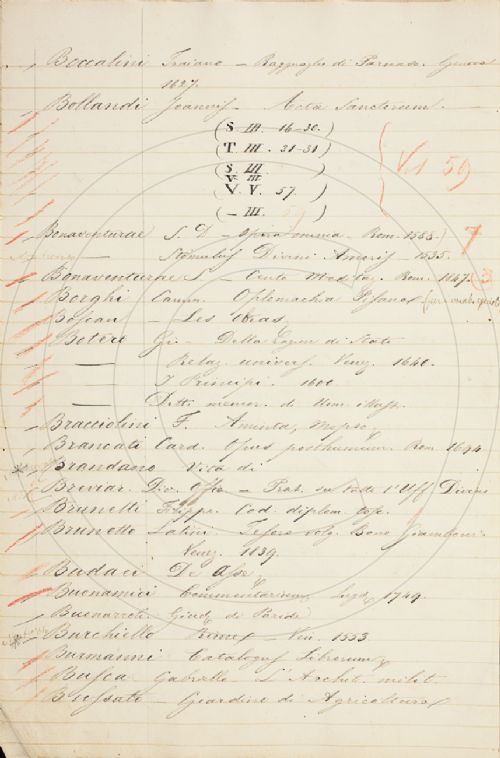 Boccalini Traiano – Ragguaglio di Parnaso. Genova
1627.
Bollandi Joannis – Acta Sanctorum.
(S. III. 16–30.)
(T. III. 21–31)
(S. III.
V. III
V. V. 57. )
(– III. 59 )
Vol 59
Bonaventurae S. – Opera omnia – Rom. 1588. 7
— Stimulus Divini Amoris – 1535.
Bonaventurae S – Medita. Rom. 1647. 3
Borghi Oplomachia Pisana
Boscan – Las Obras,
Botero Gio – Della Ragion di Stato
— Relaz. univers. Venez. 1640.
— I Principi. 1600
— Detti memor. di
Bracciolini F. Aminta,
Brancati Card. Opus posthumum. Rom. 1694.
Brandano Vita di
Breviar. Div. Offo – Trat. su tutto l'Uff Divino
Brunetti Filippo. Cod. diplom. tosc.
Brunetto Latini. Tesoro volg. Bono Giamboni.
Venez. 1839.
Budaei De Asse,
Buonamici Commentarium. 1749.
Buonarroti. Giud. di Paride
Burchiello Rime – Ven. 1553
Burmanni Catalogus Librorum
Busca Gabriello – L'Archit. milit.
Bussato – Giardino di Agricoltura